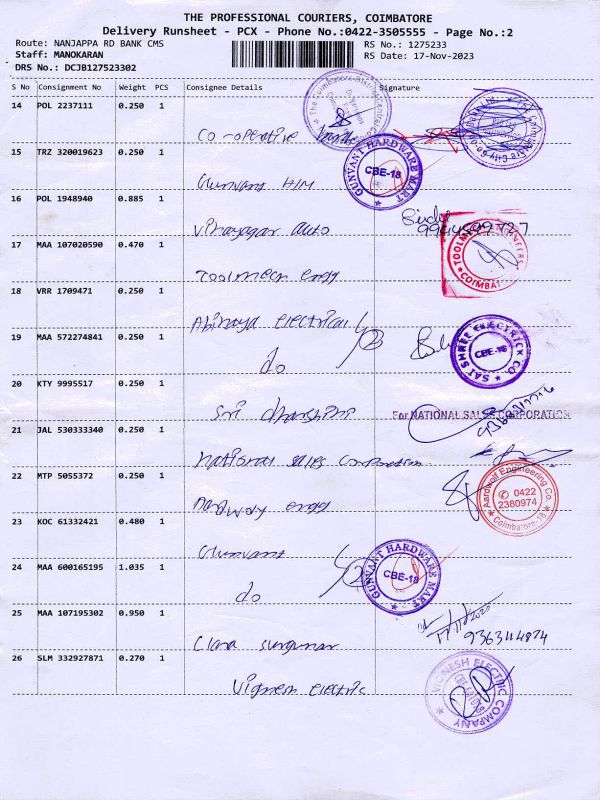 THE PROFESSIONAL COURIERS, COIMBATORE
Delivery Runsheet - PCX - Phone No.:0422-3505555 - Page No.:2
Route: NANJAPPA RD BANK CMS
RS No.: 1275233
Staff: MANOKARAN
RS Date: 17-Nov-2023
DRS No.: DCJB127523302
S No Consignment No Weight PCS Consignee Details Signature
14 POL 2237111 0.250 1
Co-operative
15 TRZ 320019623 0.250 1
GUNVANT HARDWARE MART
CBE-18
Gunvant H/M
16 POL 1948940 0.885 1
Vinayagar auto
17 MAA 107020590 0.470 1
Toolmech engg
18 VRR 1709471 0.250 1
Abinaya electrical
19 MAA 572274841 0.250 1
SAI SHREE ELECTRICK CO.
do
20 KTY 9995517 0.250 1
Sri
For NATIONAL SALES CORPORATION
21 JAL 530333340 0.250 1
National sales Corporation
22 MTP 5055372 0.250 1
Aardwolf Engineering Co.
0422
2380974
Coimbatore-18
engg
23 KOC 61332421 0.480 1
Gunvant
24 MAA 600165195 1.035 1
GUNVANT HARDWARE MART
CBE-18
do
25 MAA 107195302 0.950 1
17/11/2023
Clara
26 SLM 332927871 0.270 1
VIGNESH ELECTRIC COMPANY
Vignesh electric